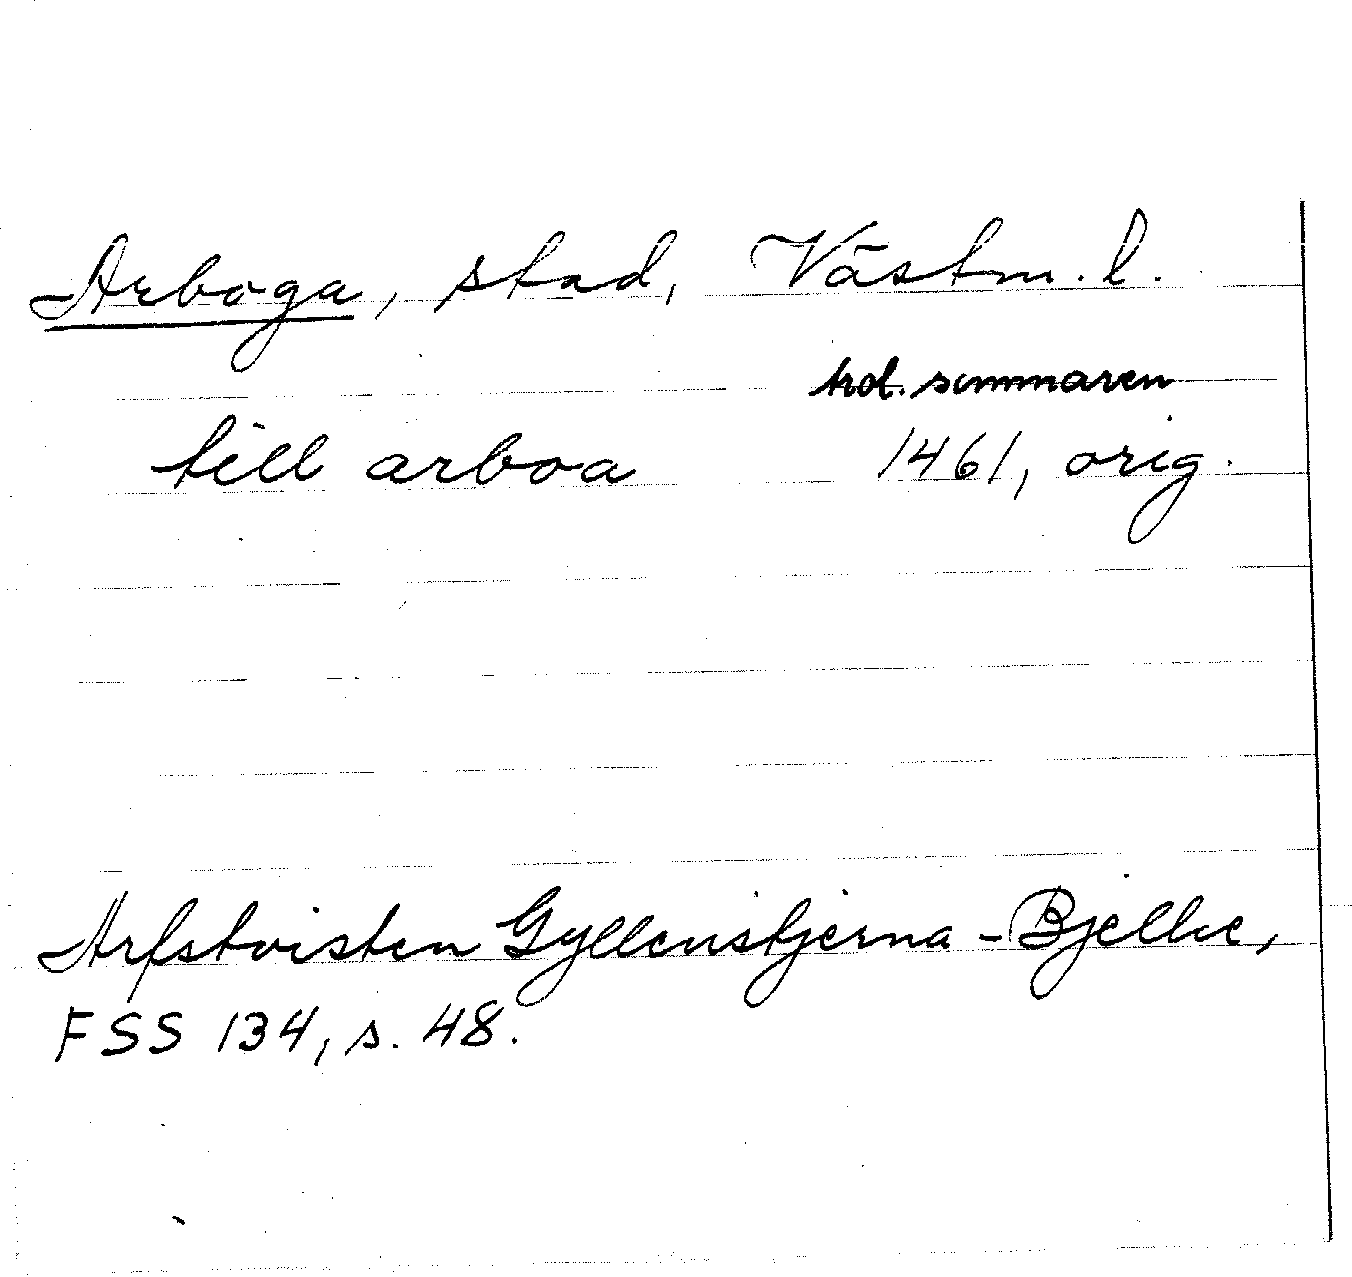 Arboga, stad, Västm. l.
trol. sommaren
till arboa 1461, orig.
Arfstvisten Gyllenstjerna - Bjelke,
FSS 134, s. 48.